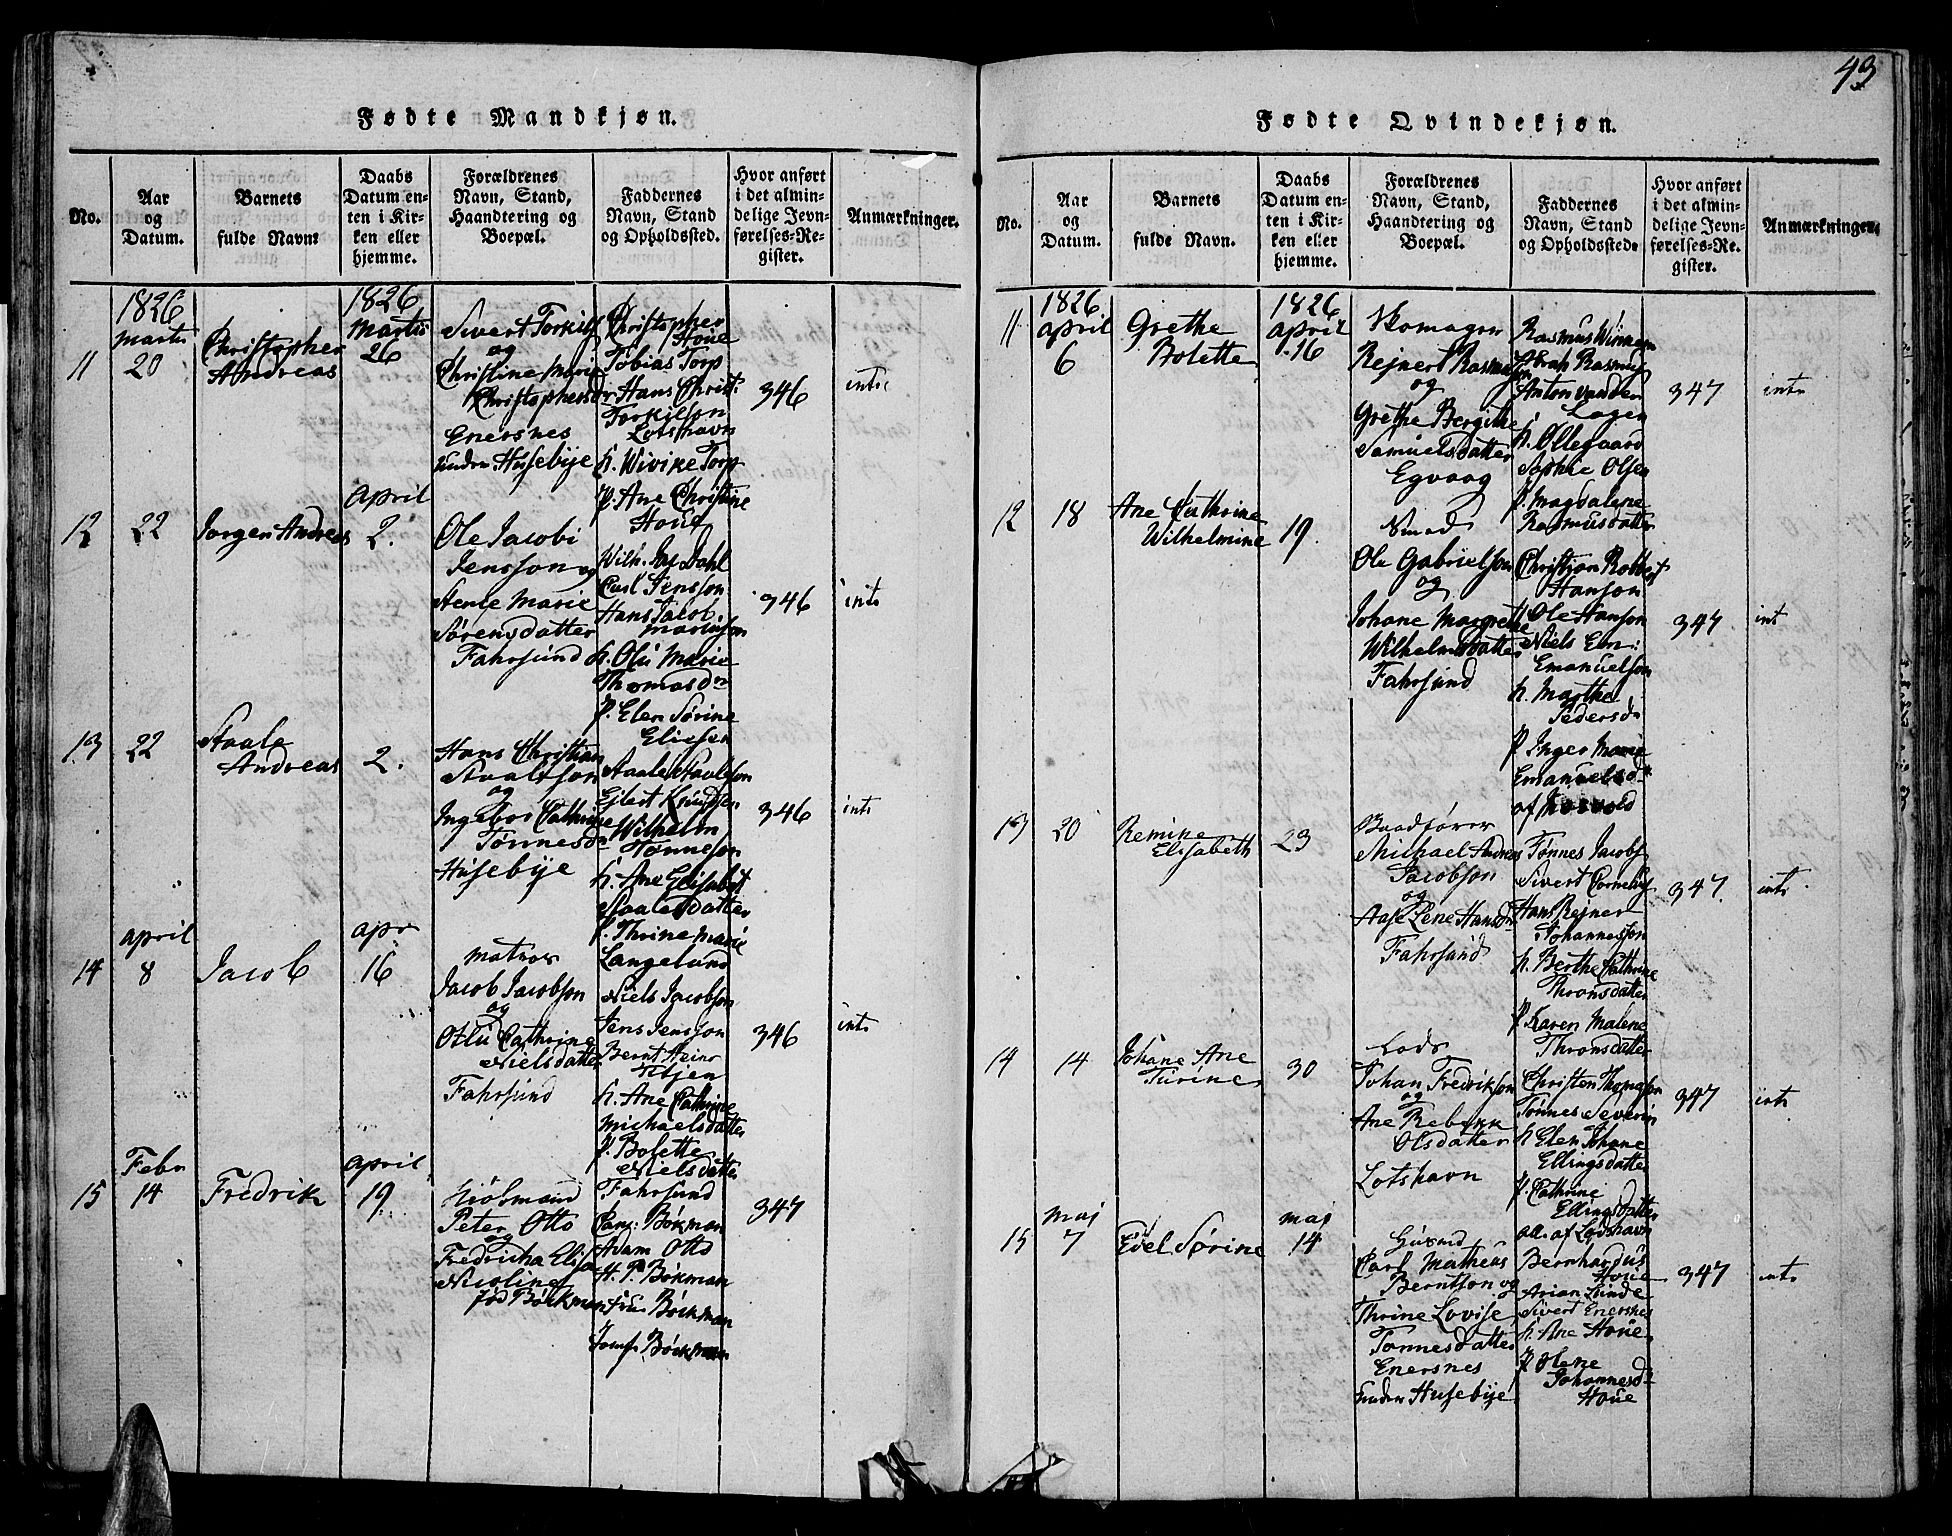 43
Fødte Mandkjøn.
No.
Aar
og
Datum.
Barnets
fulde Navn.
Daabs
Datum en-
ten i Kir-
ken eller
hjemme.
Forældrenes
Navn, Stand,
Haandtering og
Boepæl.
Faddernes
Navn, Stand
og Opholdssted.
Hvor anført
i det almin-
delige Jevn-
førelses-Re-
gister.
Anmærkninger.
11
1826
martii
20
Christopher
Andreas
1826
martii
26
Sivert Torkils
og
Christine Marie
Christophersdr
Enersnes
under Husebije
Christopher
Houe
Tobias Torp
Hans Christ:
Torkilson
Lotshavn
h. Wivike Torp
P. Ane Christine
Houe
346
int:
12
22
Jørgen Andreas
april
2.
Ole Jacobi
Jensson og
Marie
Sørensdatter
Fahrsund
Wilh. Dahl
Carl Jensson
Hans Jacob
h. Olu Marie
Thomasdr
P. Elen Sørine
Eliesen
346
int:
13
22
Staale
Andreas
2.
Hans Christian
Staalsson
og
Ingebor Cathrine
Tønnesdr
Husebije
Staale Staalsson
Ejlert Knudsen
Wilhelm
Tønneson
h. Ane Elisabet
Staalesdatter
P. Thrine Marie
Langelund
346
int:
14
april
8
Jacob
apr
16
matros
Jacob Jacobson
og
Cathrine
Nielsdatter
Fahrsund
Niels Jacobson
Jens Jensson
Bernt Heinr
Titjen
h. Ane Cathrine
Michaelsdatter
P. Bolette
Nielsdatter
Fahrsund
346
int:
15
Febr
14
Fredrik
april
19
Kiøbmand
Peter Otto
og
Fredricha Elisa
Nicoline
fød Böckman
Canz: Bökman
Adam Otto
H. P. Bökman
frue Böckman
Jomf: Böckman
347
Fødte Qvindekjøn.
No.
Aar
og
Datum.
Barnets
fulde Navn.
Daabs
Datum en-
ten i Kir-
ken eller
hjemme.
Forældrenes
Navn, Stand,
Haandtering og
Boepæl.
Faddernes
Navn, Stand
og Opholdssted.
Hvor anført
i det almin-
delige Jevn-
førelses-Re-
gister.
Anmærkninger.
11
1826
april
6
Grethe
Bolette
1826
april
16
Skomager
Rejnert Rasmusson
og
Grethe Bergitte
Samuelsdatter
Egvaag
Rasmus
Abrah Rasmusson
Anton vander
Lagen
h. Ollegaard
Sophie Olsen
P. Magdalene
Rasmusdatter
347
int:
12
18
Ane Cathrine
Wilhelmine
19.
Smed
Ole Gabrielson
og
Johane Margrethe
Wilhelmsdatter
Fahrsund
Christian Robbert
Hanson
Ole Hanson
Niels Em:
Emanuelson
h. Marthe
Pedersdr
P. Inger Marie
Emanuelsdr
af
347
int
13
20
Remine
Elisabeth
23
Baadfører
Michael Andreas
Jacobson
og
Aase Lene Hansdr
Fahrsund
Tønnes Jacobs
Sivert Cornelius
Hans Rejner
Johannesson
h. Berthe Cathrine
Thronsdatter
P. Karen Malene
Thronsdatter
347
int:
14
14
Johane Ane
Turine
30
Lods
Johan Fredrikson
og
Ane Rebekk
Olsdatter
Lotshavn
Christen Thomson
Tønnes Severin
h. Elen Johane
Ellingsdatter
P. Cathrine
Ellingsdatter
alle af Lodshavn
347
int:
15
maj
7
Edel Sørine
maj
14
Husmd
Carl Matheus
Berntson og
Thrine Lovise
Tønnesdatter
Enersnes
under Husebije
Bernhardus
Houe
Arian Lunde
Sivert Enersnes
h. Ane Houe
P. Olene
Johannesdr
Houe
347
int: